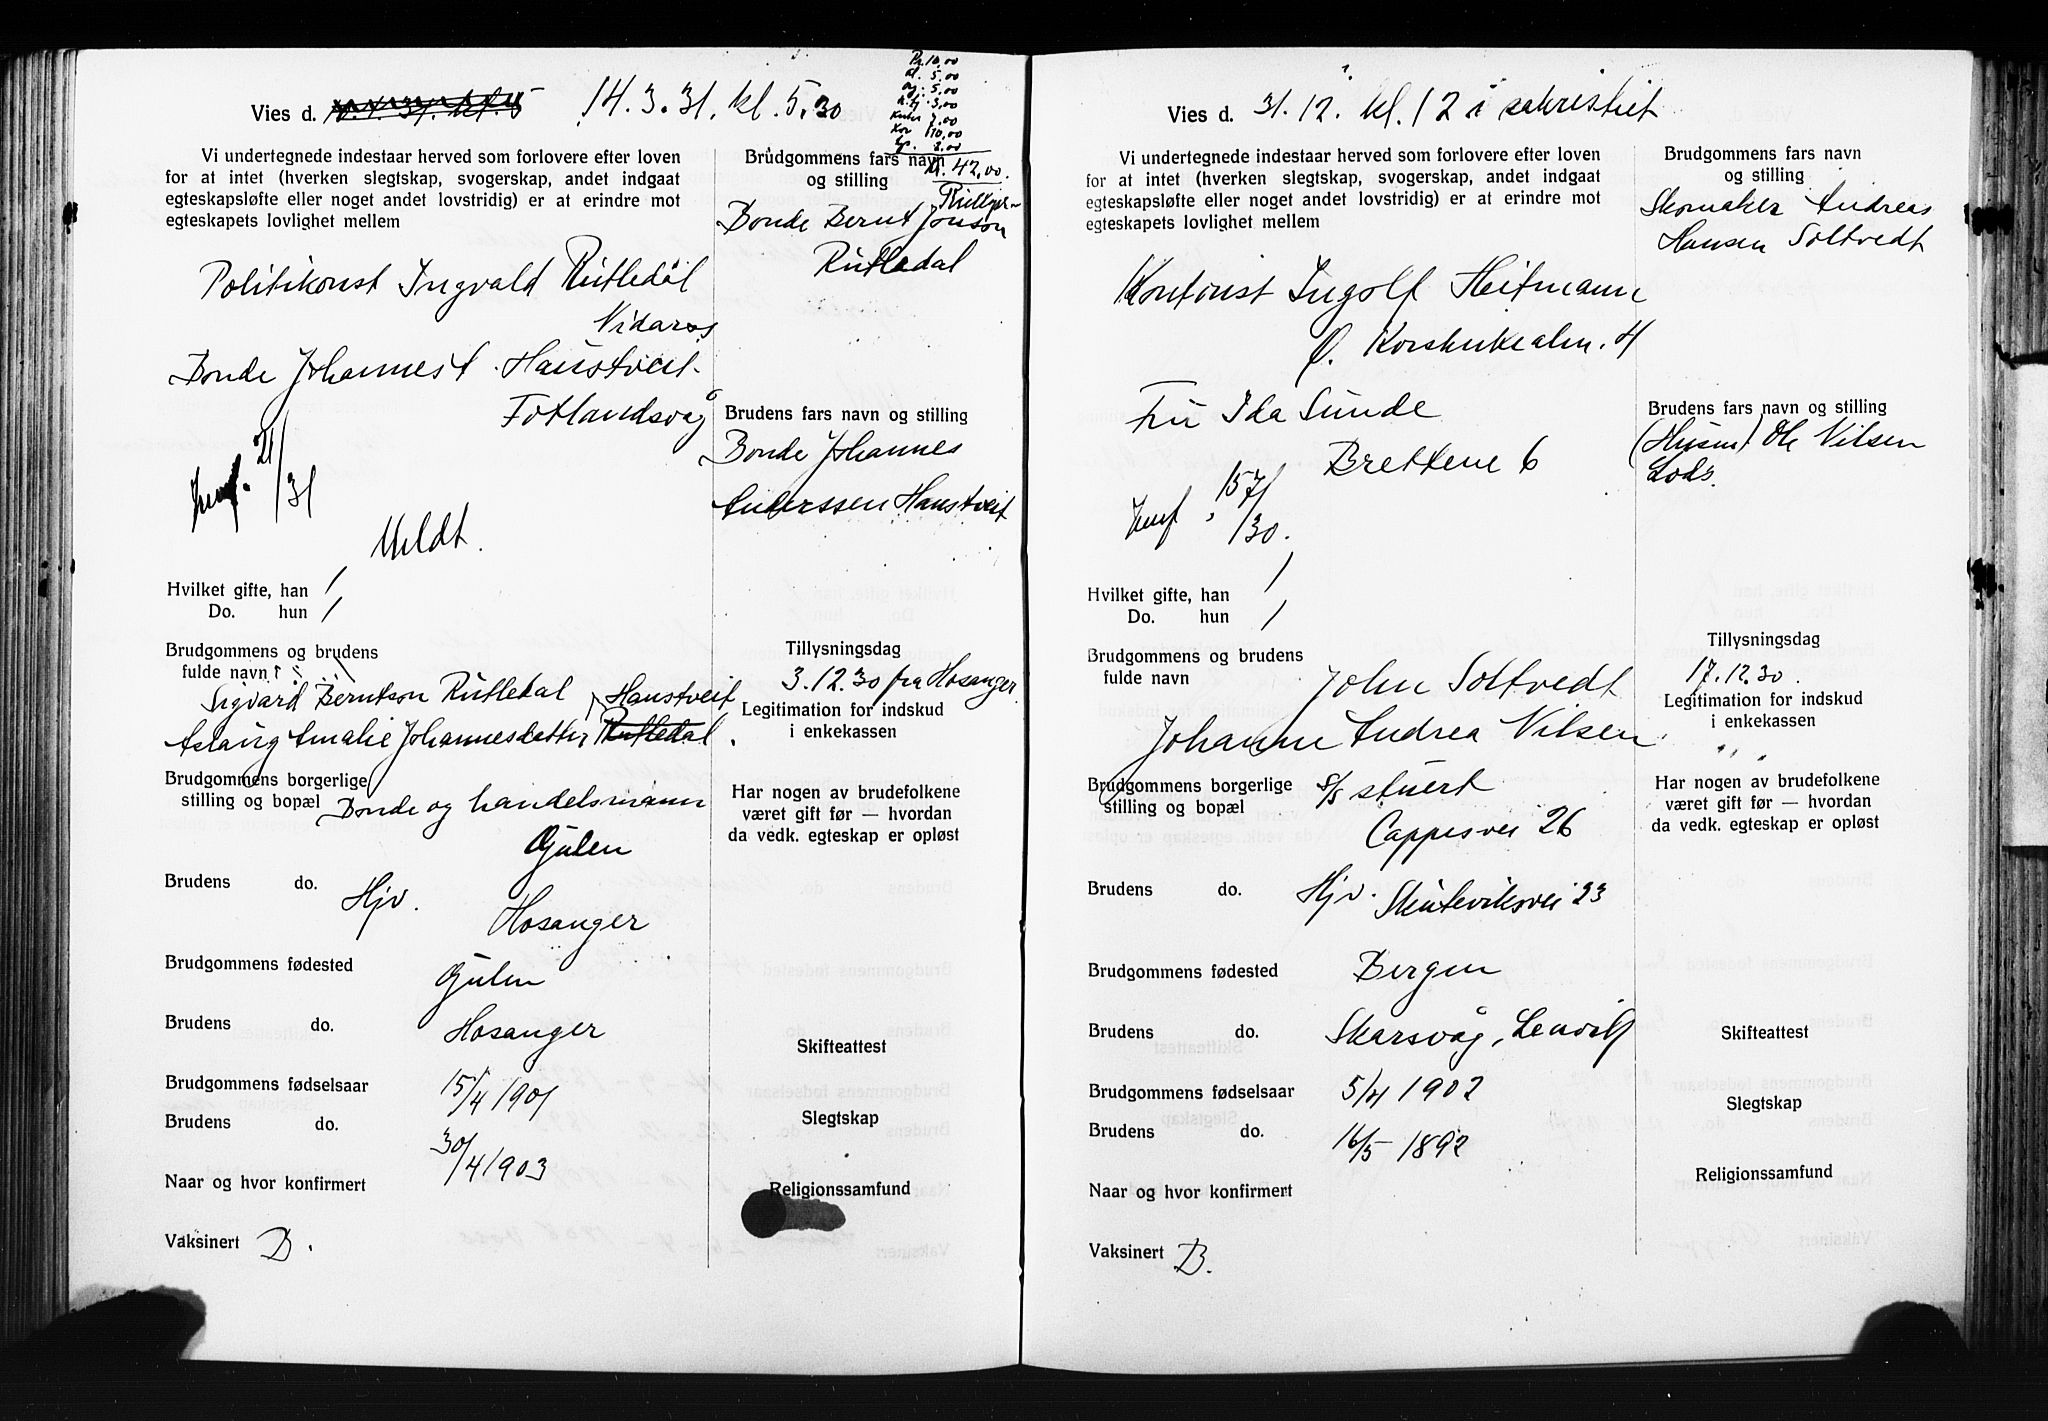 Vies d. 14.3.31. kl. 5.30
10,00
5,00
5,00
7,00
10,00
42,00.
Vi undertegnede indestaar herved som forlovere efter loven
for at intet (hverken slegtskap, svogerskap, andet indgaat
egteskapsløfte eller noget andet lovstridig) er at erindre mot
egteskapets lovlighet mellem
Brudgommens fars navn
og stilling
Bonde Bernt Jonson
Rutledal
Politikonst Ingvald Rutledal
Nidaros
Bonde Johannes A. Haustveit
Fotlandsvåg
Brudens fars navn og stilling
Bonde Johannes
Anderssen Haustveit
21/31
Meldt.
Hvilket gifte, han /
Do. hun /
Brudgommens og brudens
fulde navn
Sigvard Berntson Rutledal
Haustveit
Aslaug Amalie Johannesdatter Rutledal
Tillysningsdag
3.12.30 fra Hosanger
Legitimation for indskud
i enkekassen
Brudgommens borgerlige
stilling og bopæl Bonde og handelsmann
Gulen
Har nogen av brudefolkene
været gift før — hvordan
da vedk. egteskap er opløst
Brudens do. Hjv.
Hosanger
Brudgommens fødested Gulen
Brudens do. Hosanger
Skifteattest
Brudgommens fødselsaar 15/4 1901
Slegtskap
Brudens do. 30/4 1903
Naar og hvor konfirmert
Religionssamfund
Vaksinert B.
Vies d. 31.12. kl. 12 i sakristiet
Vi undertegnede indestaar herved som forlovere efter loven
for at intet (hverken slegtskap, svogerskap, andet indgaat
egteskapsløfte eller noget andet lovstridig) er at erindre mot
egteskapets lovlighet mellem
Brudgommens fars navn
og stilling
Skomaker Andreas
Hansen Soltvedt
Kontorist Ingolf Heitmann
Ø. Korskirkealm. 4
Fru Ida Sunde
Brettene 6
Brudens fars navn og stilling
(Husm) Ole Nilsen
Lods.
157/30.
Hvilket gifte, han /
Do. hun /
Brudgommens og brudens
fulde navn
John Soltvedt
Johanne Andrea Nilsen
Tillysningsdag
17.12.30.
Legitimation for indskud
i enkekassen
Brudgommens borgerlige
stilling og bopæl S/S stuert
Cappesvei 26
Har nogen av brudefolkene
været gift før — hvordan
da vedk. egteskap er opløst
Brudens do. Hjv. Skuteviksvei 23
Brudgommens fødested Bergen
Brudens do. Skarsvåg, Lenvik
Skifteattest
Brudgommens fødselsaar 5/4 1902
Slegtskap
Brudens do. 16/5 1892
Religionssamfund
Naar og hvor konfirmert
Vaksinert B.